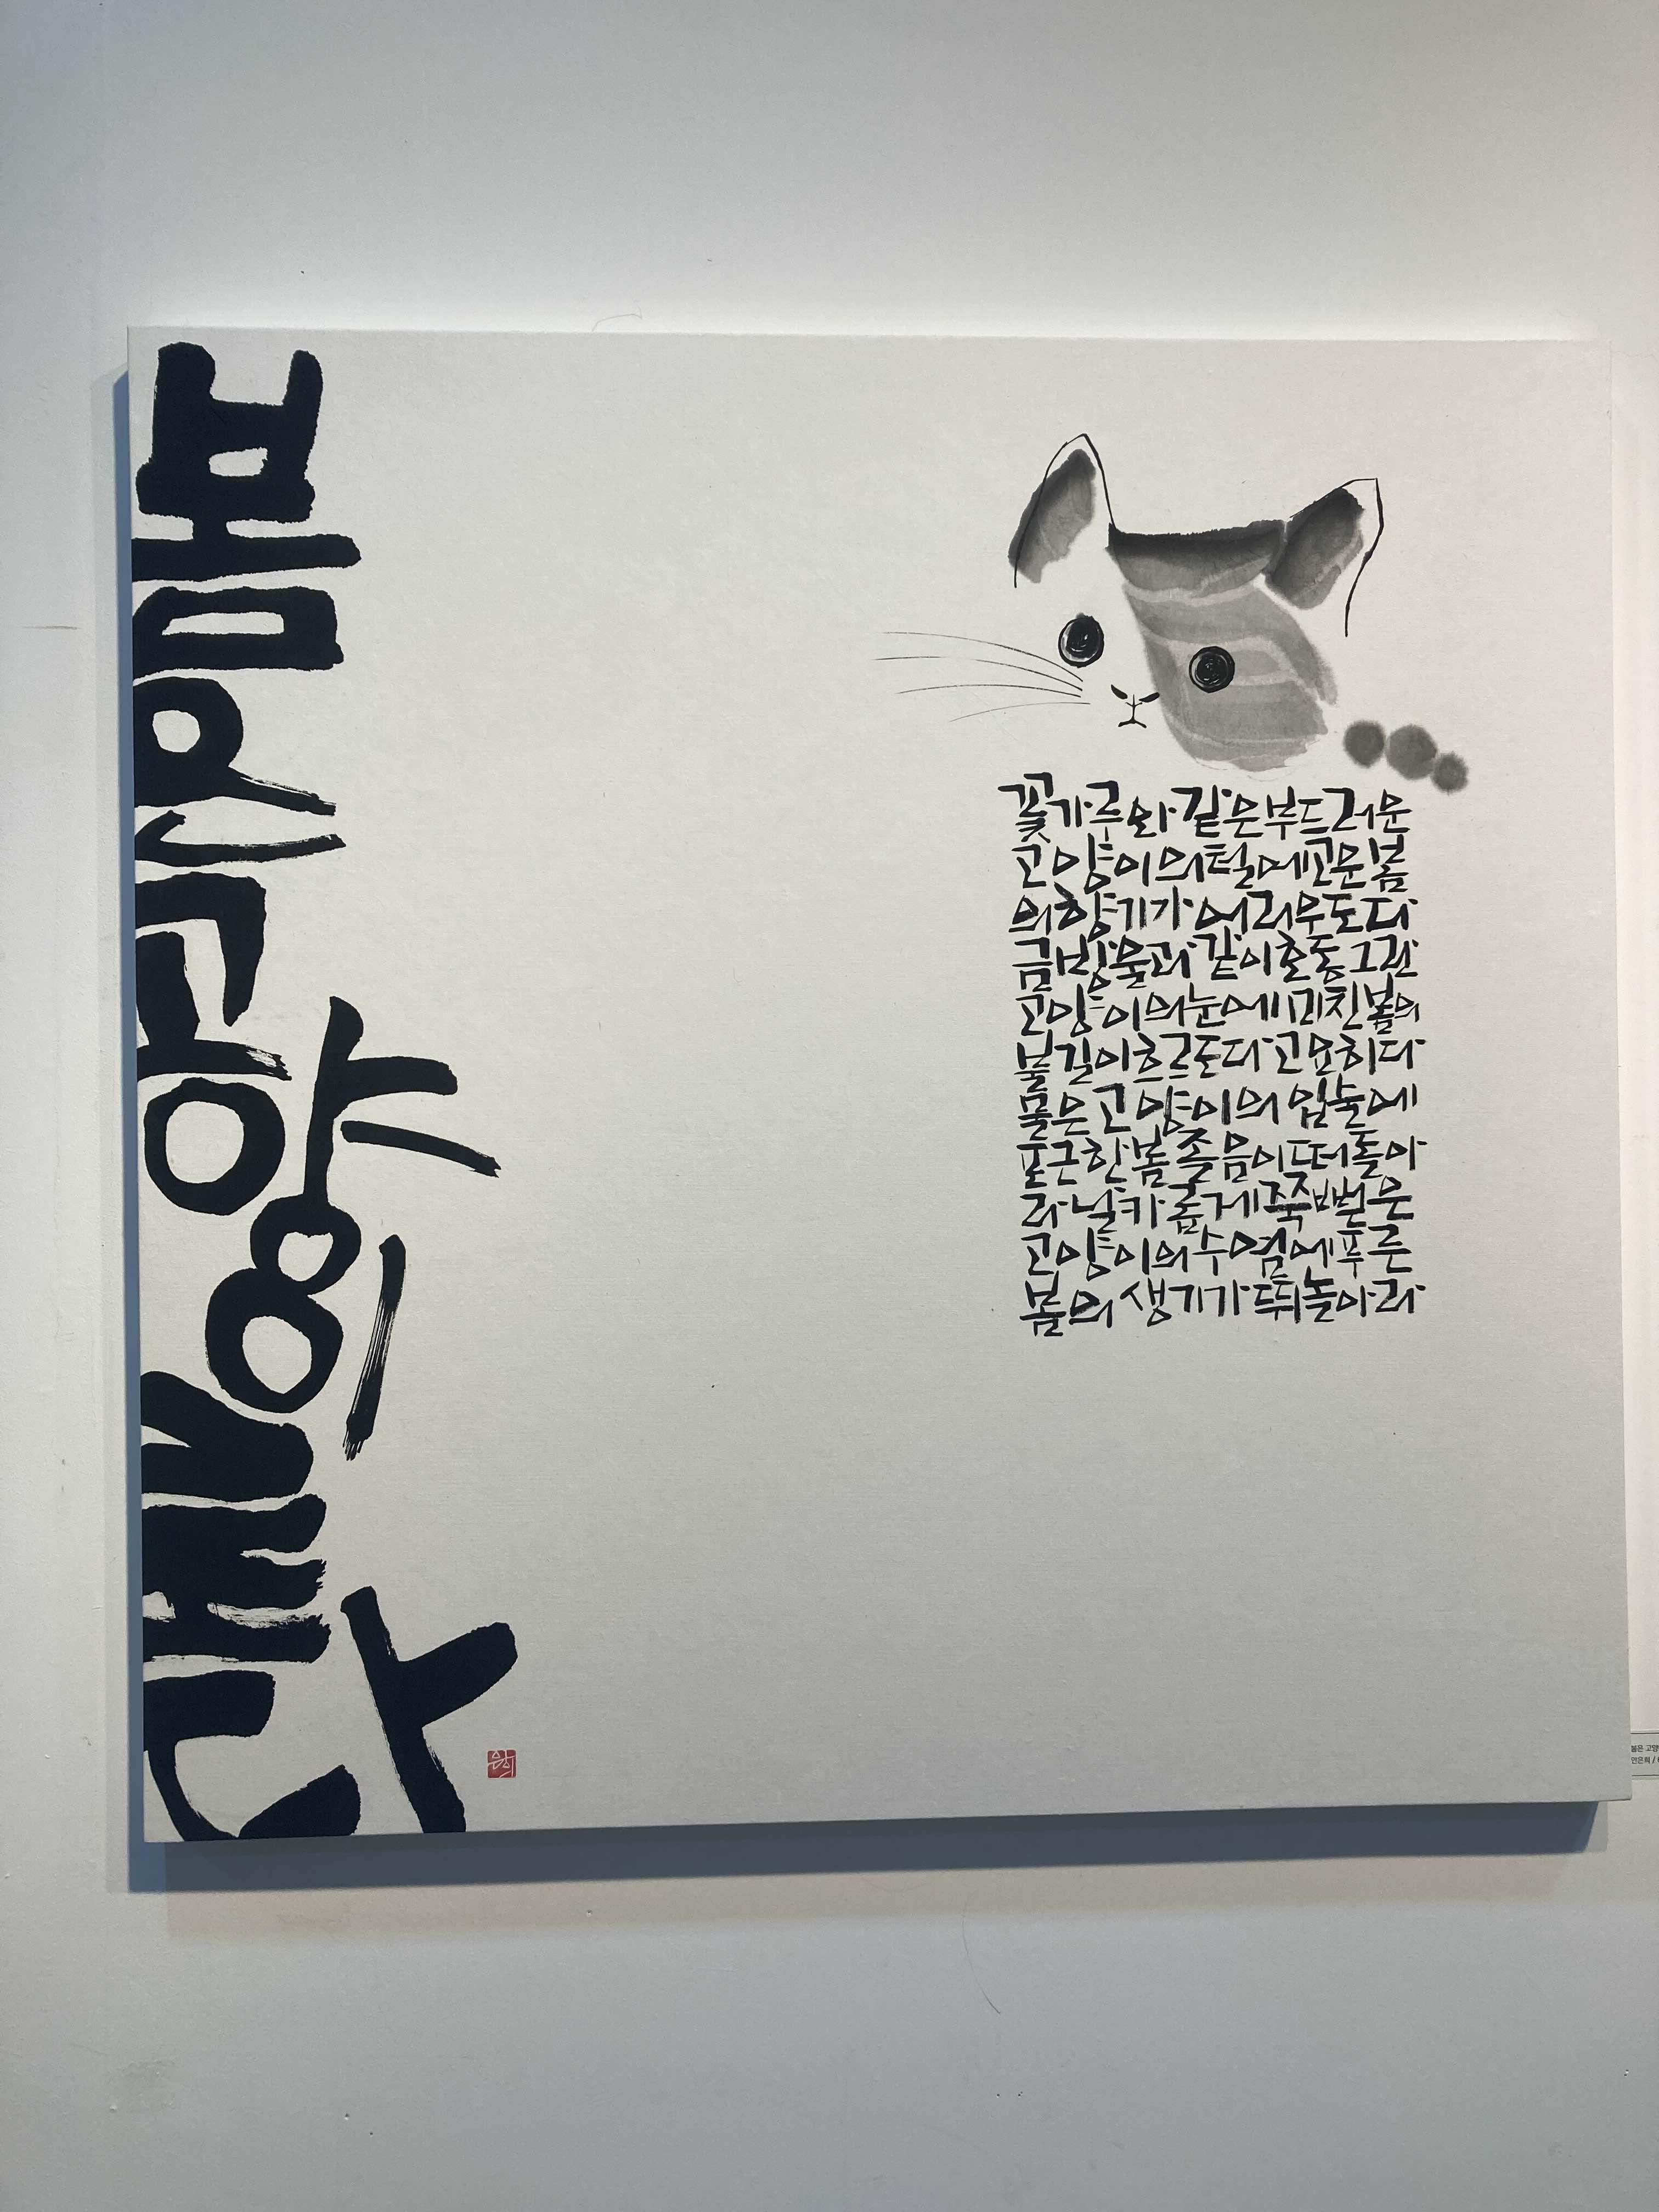 봄은고양이로다
꽃가루와 같은부드러운
고양이의털에고운봄
의향기가 어리우도다
금방울과 같이호동그란
고양이의눈에미친봄의
불길이흐르도다 고요히다
물은고양이의 입술에
포근한봄졸음이떠돌아
라 날카롭게쭉뻗은
고양이의수염에푸른
봄의 생기가뛰놀아라
은희
봄은 고양